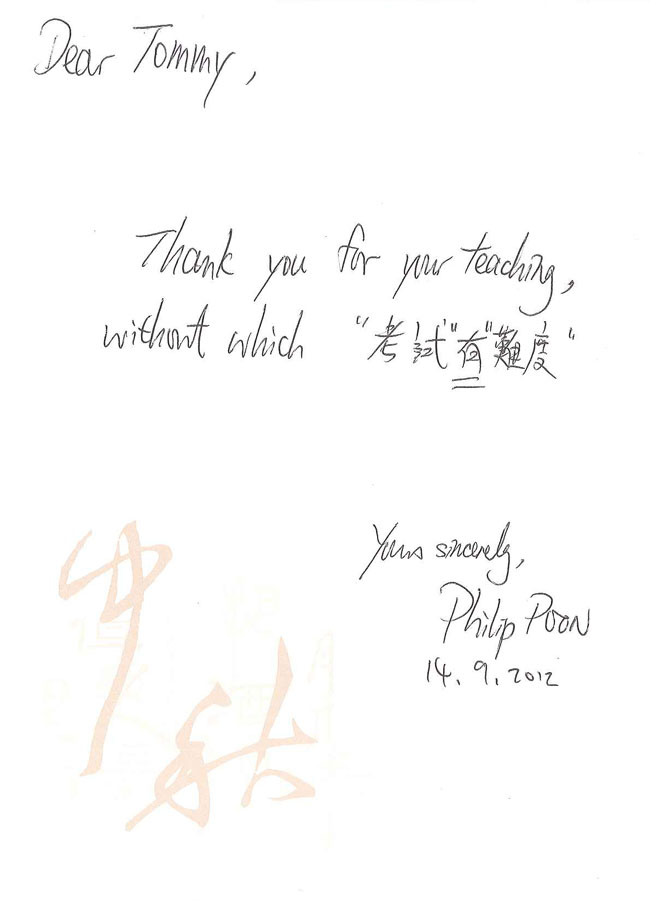 Dear Tommy,
Thank you for your teaching,
without which "考試"有"難度"
Yours sincerely,
Philip Poon
14.9.2012
中秋